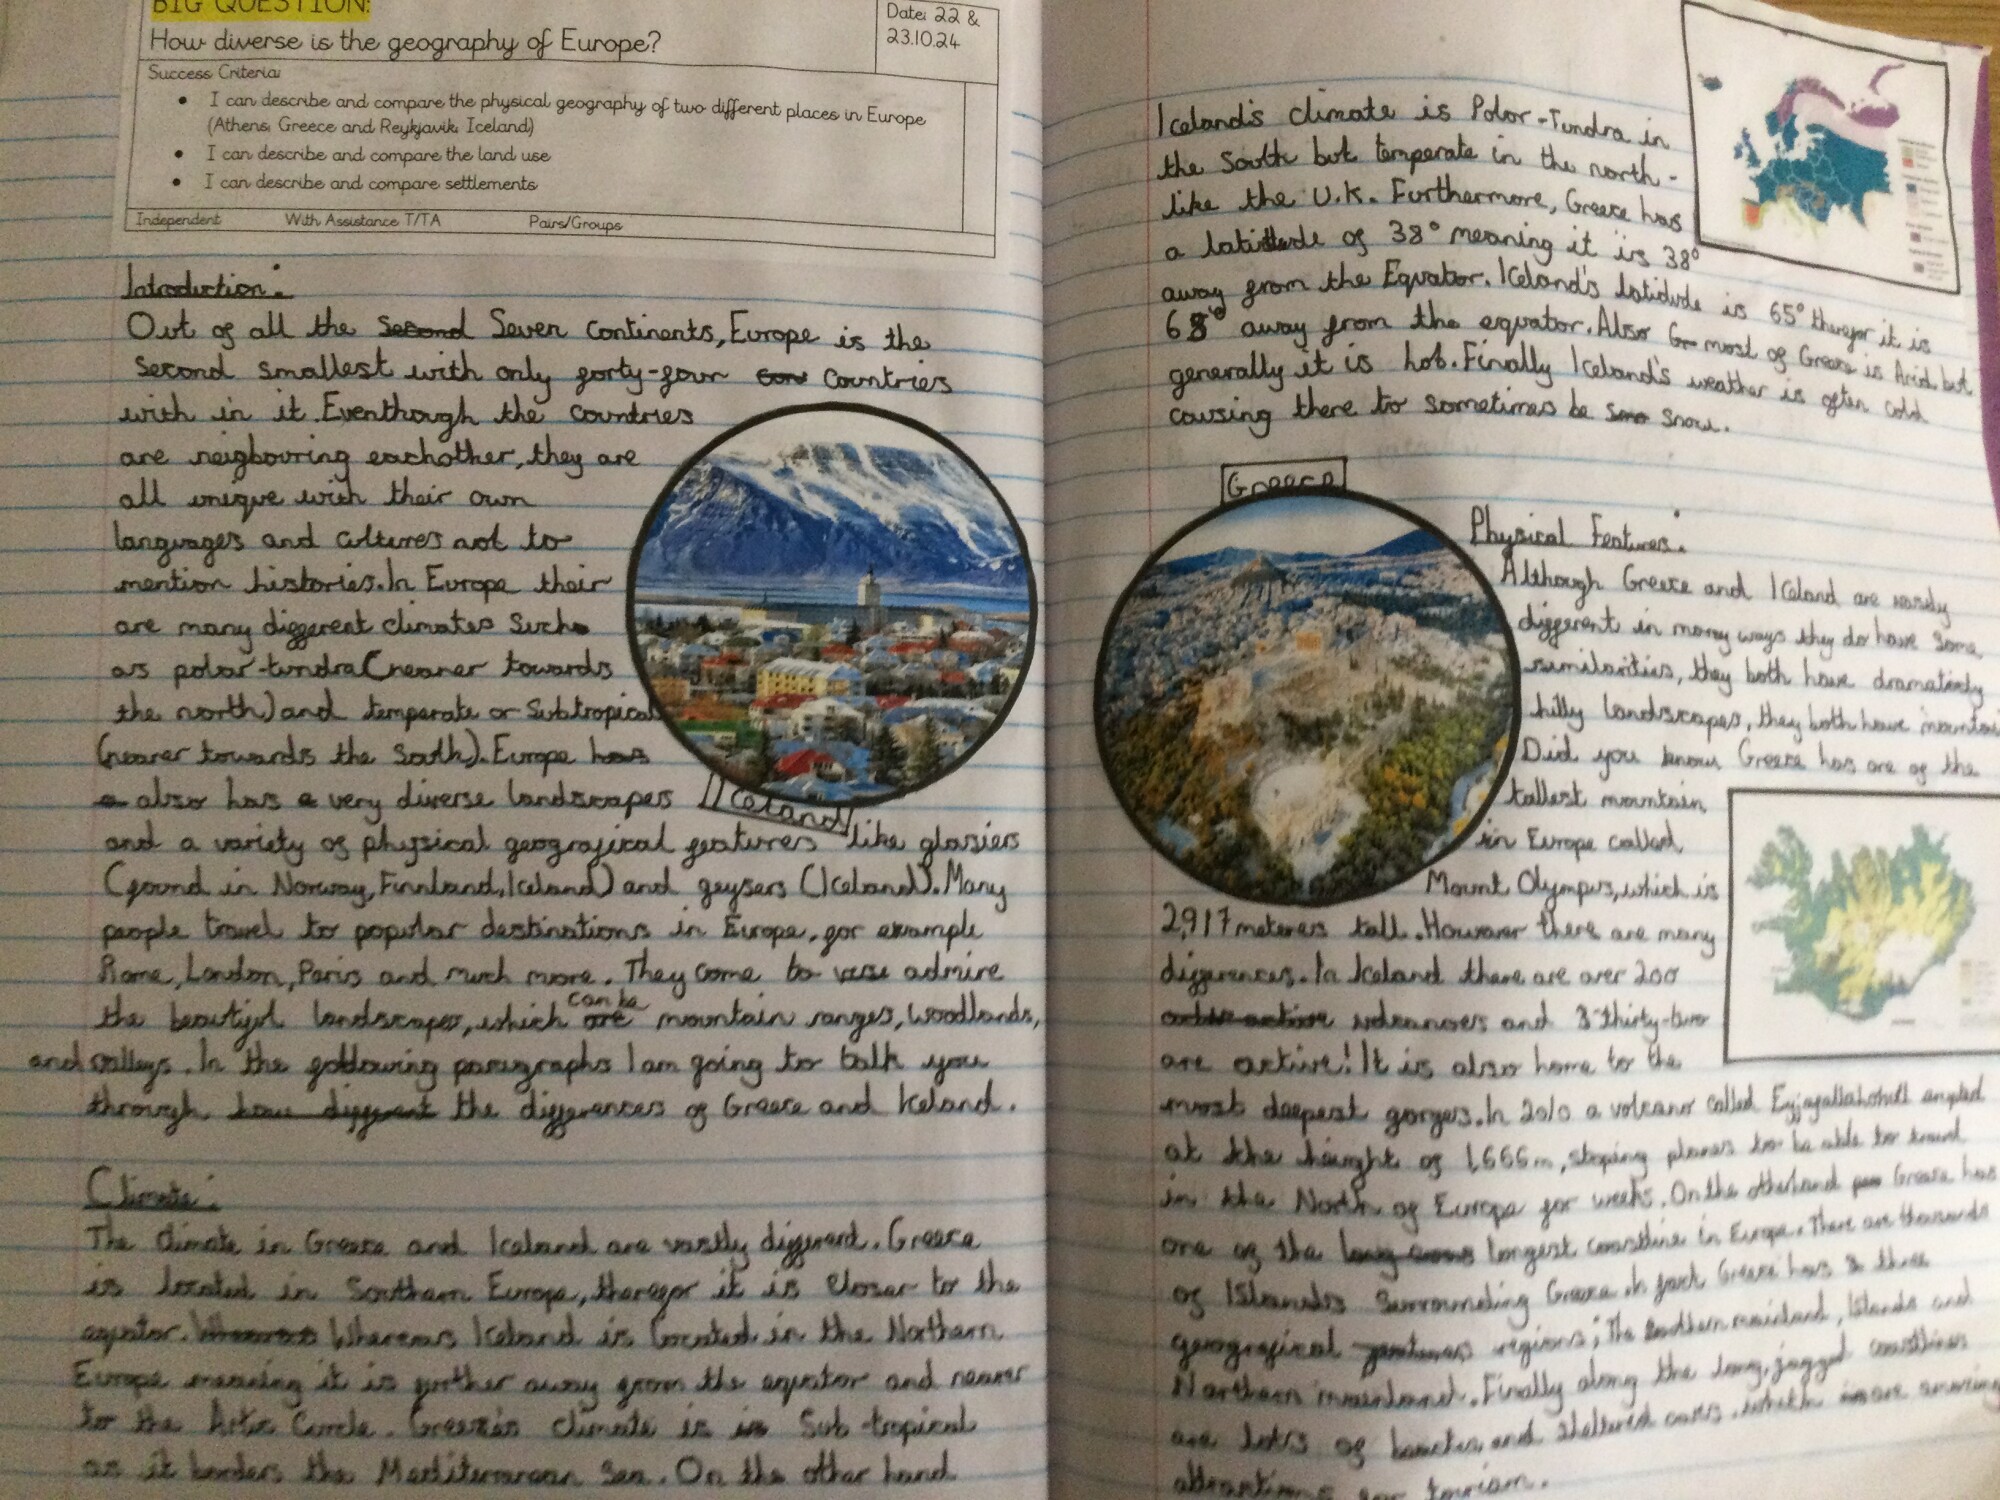 BIG QUESTION:
How diverse is the geography of Europe?
Date: 22 &
23.10.24
Success Criteria:
• I can describe and compare the physical geography of two different places in Europe
(Athens, Greece and Reykjavik, Iceland)
• I can describe and compare the land use
• I can describe and compare settlements
Independent With Assistance T/TA Pairs/Groups
Introduction:
Out of all the Second Seven continents, Europe is the
second smallest with only forty-four countries
with in it. Eventhough the countries
are neigbouring eachother, they are
all unique with their own
languages and cultures not to
mention histories. In Europe their
are many different climates such
as polar-tundra (nearer towards
the north) and temperate or Subtropical
(nearer towards the South). Europe has
a also has a very diverse landscapes
Iceland
and a variety of physical geografical features like glasiers
(found in Norway, Finnland, Iceland) and geysers (Iceland). Many
people travel to popular destinations in Europe, for example
Rome, London, Paris and much more. They come to admire
the beautifrl landscapes, which are can be mountain ranges, woodlands,
and valleys. In the following paragraphs I am going to talk you
through how different the differences of Greece and Iceland.
Climate:
The climate in Greece and Iceland are vastly different. Greece
is located in Southern Europe, therefor it is closer to the
equator. Whereas Iceland is located in the Northern
Europe meaning it is further away from the equator and nearer
to the Artic Circle. Greece's climate is in Sub-tropical
as it borders the Mediterranean Sea. On the other hand
Iceland's climate is Polar-Tundra in
the South but temperate in the north-
like the U.K. Furthermore, Greece has
a latitude of 38° meaning it is 38°
away from the Equator. Iceland's latidude is 65° therefor it is
away from the equator. Also Gr most of Greece is Arid but
generally it is hot. Finally Iceland's weather is often cold
causing there to sometimes be sno snow.
Greece
Physical Features:
Although Greece and Iceland are vastly
different in many ways they do have some
similarities, they both have dramaticly
hilly landscapes, they both have mountai
Did you know Greece has one of the
tallest mountain
in Europe called
Mount Olympus, which is
2,917 meteres tall. However there are many
differences. In Iceland there are over 200
volcanoes and 3 thirty-two
are active! It is also home to the
most deepest gorges. In 2010 a volcano called
at the height of 1,666m, stoping planes to be able to travel
in the North of Europe for weeks. On the otherhand Greece has
one of the longest coastline in Europe. There are thousands
of Islands surrounding Greece. In fact Greece has 3 three
geografical features regions; The Southern mainland, Islands and
Northern mainland. Finally along the long, jagged coastlines
are lots of beaches, and sheltered coves, which are amazing
attractions for tourism.